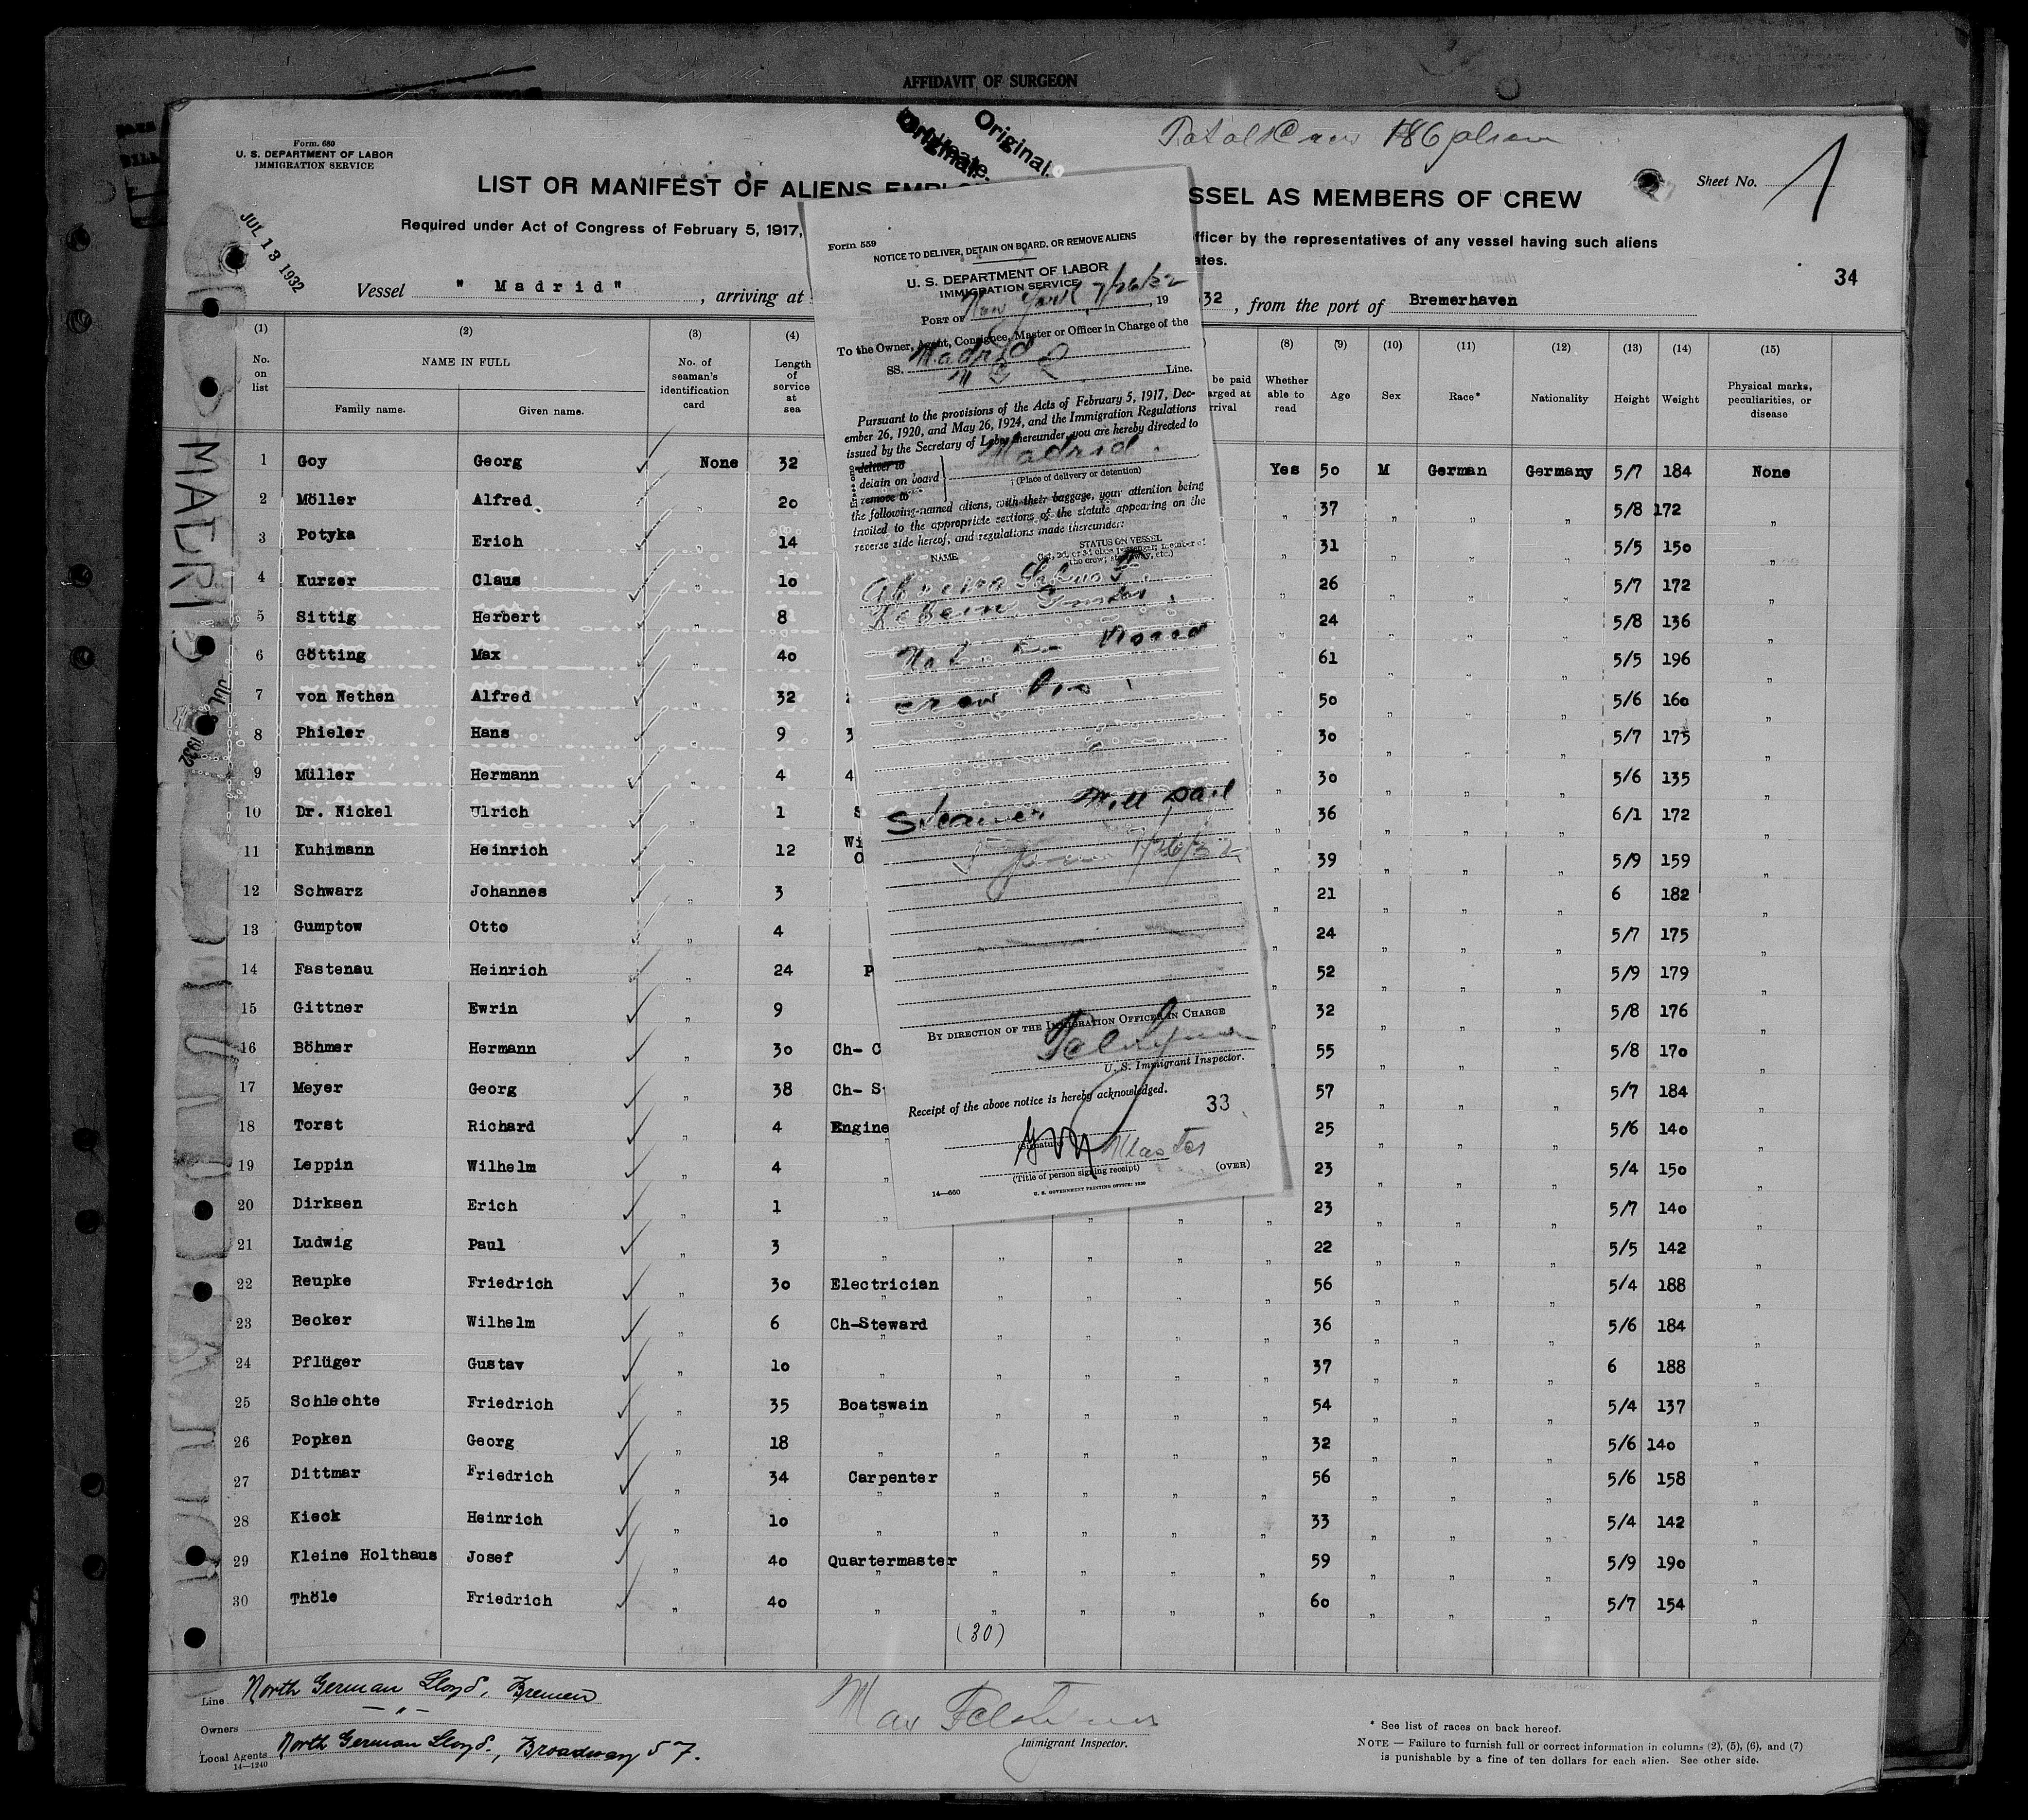 AFFIDAVIT OF SURGEON
Form. 680
U. S. DEPARTMENT OF LABOR
IMMIGRATION SERVICE
Original.
Sheet No. 1
LIST OR MANIFEST OF ALIENS
SSEL AS MEMBERS OF CREW
Required under Act of Congress of February 5, 1917,
fficer by the representatives of any vessel having such aliens
ates.
JUL 13 1932
34
Vessel " Madrid " , arriving at
32 , from the port of Bremerhaven
(1) (2) (3) (4) (8) (9) (10) (11) (12) (13) (14) (15)
No. on list
NAME IN FULL
Family name. Given name.
No. of seaman's identification card
Length of service at sea
be paid
arged at
rrival
Whether able to read
Age
Sex
Race*
Nationality
Height
Weight
Physical marks, peculiarities, or disease
1 Goy Georg None 32 Yes 50 M German Germany 5/7 184 None
2 Möller Alfred " 20 " 37 " " " 5/8 172 "
3 Potyka Erich " 14 " 31 " " " 5/5 150 "
4 Kurzer Claus " 10 " 26 " " " 5/7 172 "
5 Sittig Herbert " 8 " 24 " " " 5/8 136 "
6 Götting Max " 40 " 61 " " " 5/5 196 "
7 von Nethen Alfred " 32 " 50 " " " 5/6 160 "
8 Phieler Hans " 9 3 " 30 " " " 5/7 175 "
9 Müller Hermann " 4 4 " 30 " " " 5/6 135 "
10 Dr. Nickel Ulrich " 1 S " 36 " " " 6/1 172 "
11 Kuhlmann Heinrich " 12 Wi O " 39 " " " 5/9 159 "
12 Schwarz Johannes " 3 " 21 " " " 6 182 "
13 Gumptow Otto " 4 " 24 " " " 5/7 175 "
14 Fastenau Heinrich " 24 P " 52 " " " 5/9 179 "
15 Gittner Ewrin " 9 " 32 " " " 5/8 176 "
16 Böhmer Hermann " 30 Ch- C " 55 " " " 5/8 170 "
17 Meyer Georg " 38 Ch- S " 57 " " " 5/7 184 "
18 Torst Richard " 4 Engine " 25 " " " 5/6 140 "
19 Leppin Wilhelm " 4 " " 23 " " " 5/4 150 "
20 Dirksen Erich " 1 " " " " " 23 " " " 5/7 140 "
21 Ludwig Paul " 3 " " " " " 22 " " " 5/5 142 "
22 Reupke Friedrich " 30 Electrician " " " " 56 " " " 5/4 188 "
23 Becker Wilhelm " 6 Ch-Steward " " " " 36 " " " 5/6 184 "
24 Pflüger Gustav " 10 " " " " " 37 " " " 6 188 "
25 Schlechte Friedrich " 35 Boatswain " " " " 54 " " " 5/4 137 "
26 Popken Georg " 18 " " " " " 32 " " " 5/6 140 "
27 Dittmar Friedrich " 34 Carpenter " " " " 56 " " " 5/6 158 "
28 Kieck Heinrich " 10 " " " " " 33 " " " 5/4 142 "
29 Kleine Holthaus Josef " 40 Quartermaster " " " " 59 " " " 5/9 190 "
30 Thöle Friedrich " 40 " " " " " 60 " " " 5/7 154 "
(30)
Line North German Lloyd, Bremen
Owners — " —
Local Agents North German Lloyd., Broadway 57.
14—1240
Max
Immigrant Inspector.
* See list of races on back hereof.
NOTE — Failure to furnish full or correct information in columns (2), (5), (6), and (7)
is punishable by a fine of ten dollars for each alien. See other side.
Form 559
NOTICE TO DELIVER, DETAIN ON BOARD, OR REMOVE ALIENS
U. S. DEPARTMENT OF LABOR
IMMIGRATION SERVICE
PORT OF New York 7/26/32, 19
To the Owner, Agent, Consignee, Master or Officer in Charge of the
SS. Madrid
Line.
Pursuant to the provisions of the Acts of February 5, 1917, Dec-
ember 26, 1920, and May 26, 1924, and the Immigration Regulations
issued by the Secretary of Labor thereunder, you are hereby directed to
deliver to
detain on board
remove to
Madrid.
(Place of delivery or detention)
the following-named aliens, with their baggage, your attention being
invited to the appropriate sections of the statute appearing on the
reverse side hereof, and regulations made thereunder:
NAME
STATUS ON VESSEL
Not on Board
Steamer will sail
7/26/32
BY DIRECTION OF THE IMMIGRATION OFFICER IN CHARGE
U. S. Immigrant Inspector.
Receipt of the above notice is hereby acknowledged.
33
(Signature)
Master
(Title of person signing receipt)
(OVER)
14—660
U. S. GOVERNMENT PRINTING OFFICE: 1930
MADRID